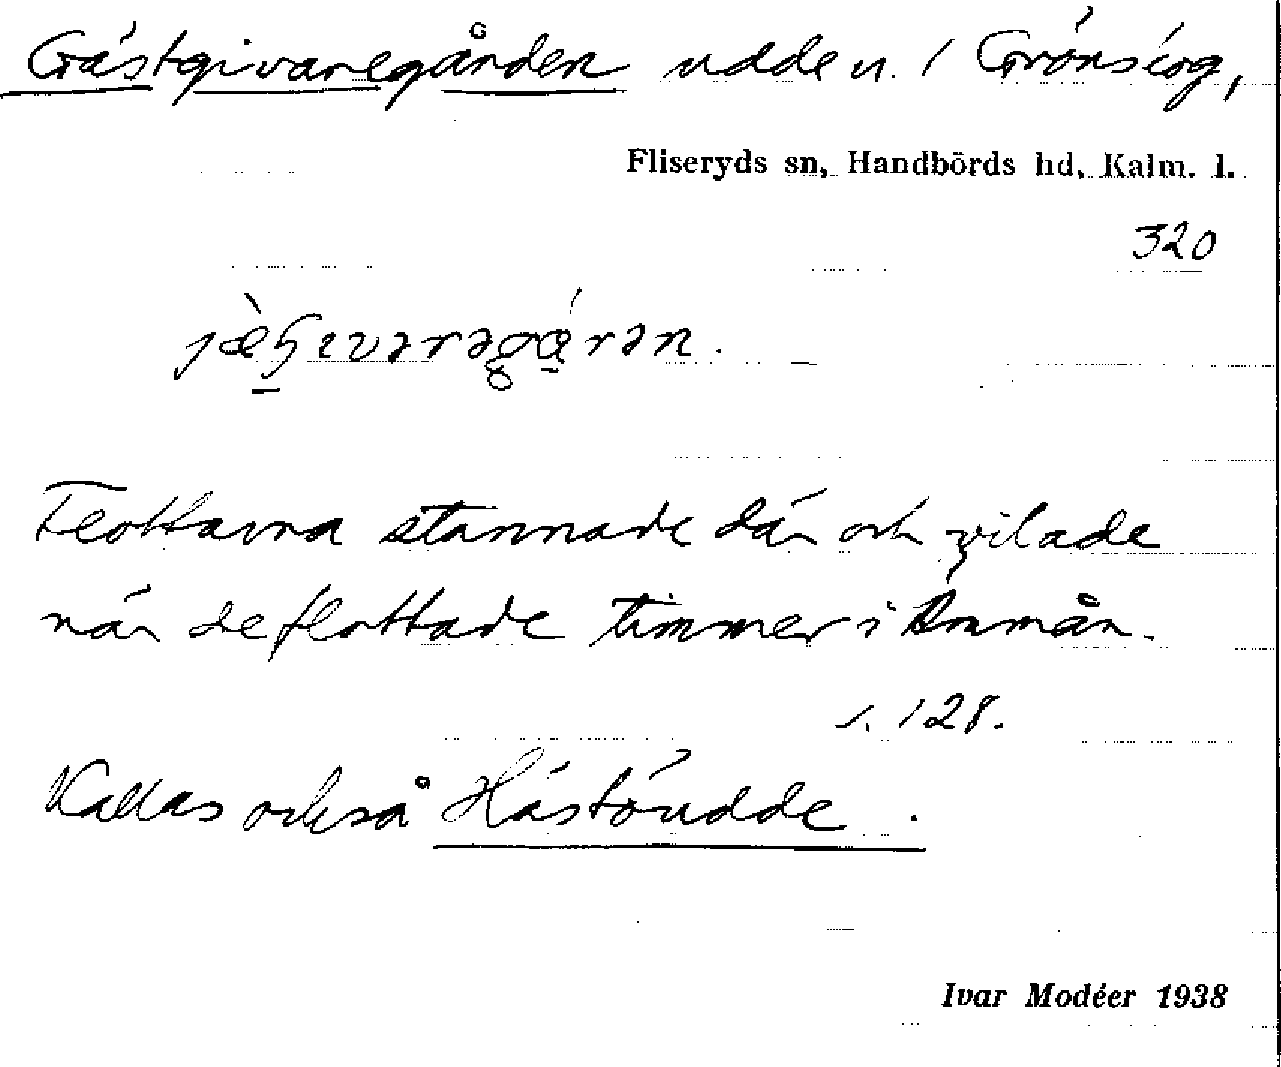 Gästgivaregården udde n. / Grönskog,
Fliseryds sn, Handbörds hd, Kalm. l.
320
Flottarna stannade där och vilade
när de flottade timmer i Emån.
s. 128.
Kallas också Hästöudde.
Ivar Modéer 1938